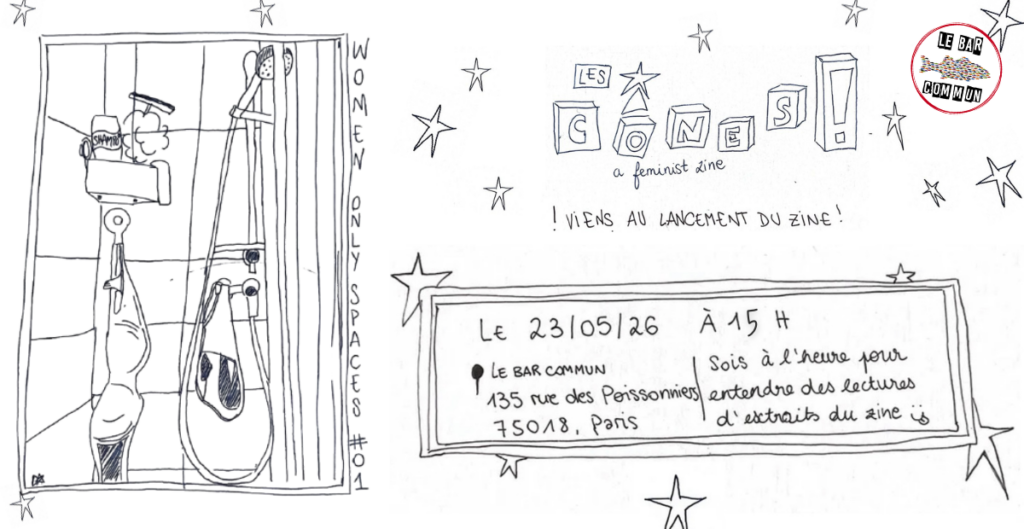 WOMEN ONLY SPACES #01
SHAMPOO
LES
CÔNES!
a feminist zine
! VIENS AU LANCEMENT DU ZINE !
LE BAR
COMMUN
LE 23/05/26 À 15 H
LE BAR COMMUN
135 rue des Poissonniers
75018, Paris
Sois à l'heure pour
entendre des lectures
d'extraits du zine